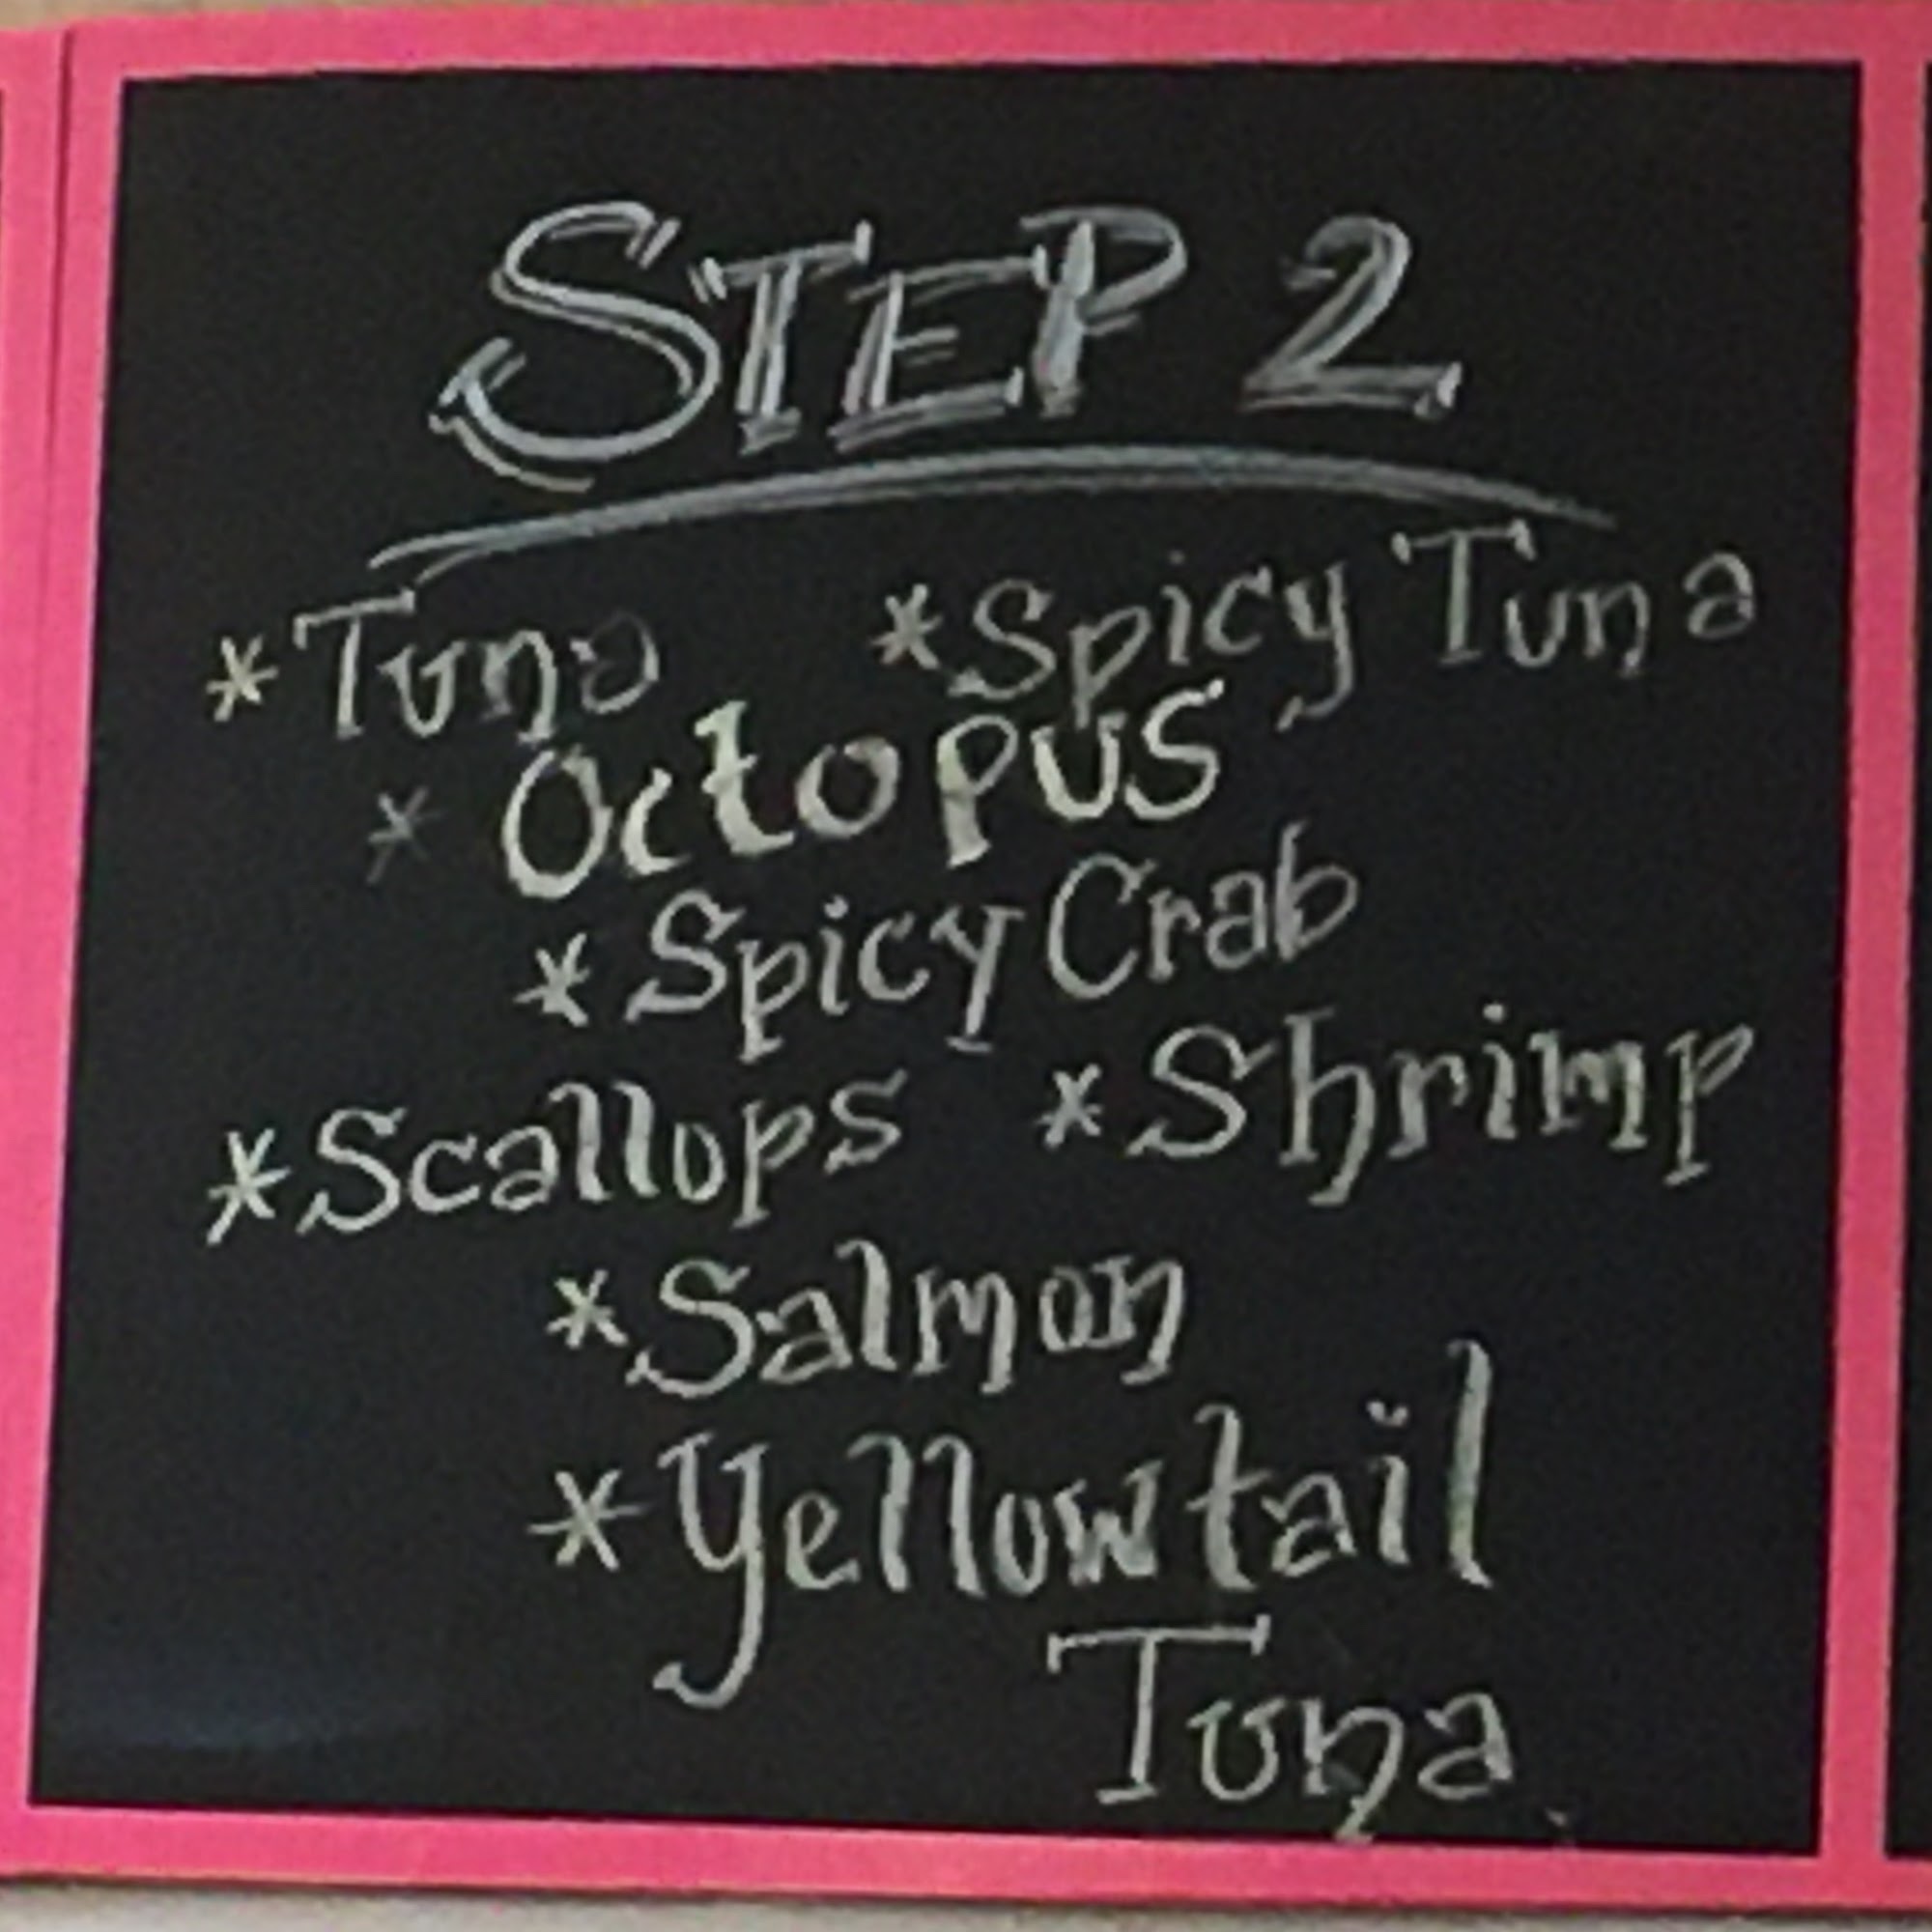 STEP 2
*Tuna *Spicy Tuna
* Octopus
* Spicy Crab
*Scallops *Shrimp
*Salmon
*Yellowtail
Tuna